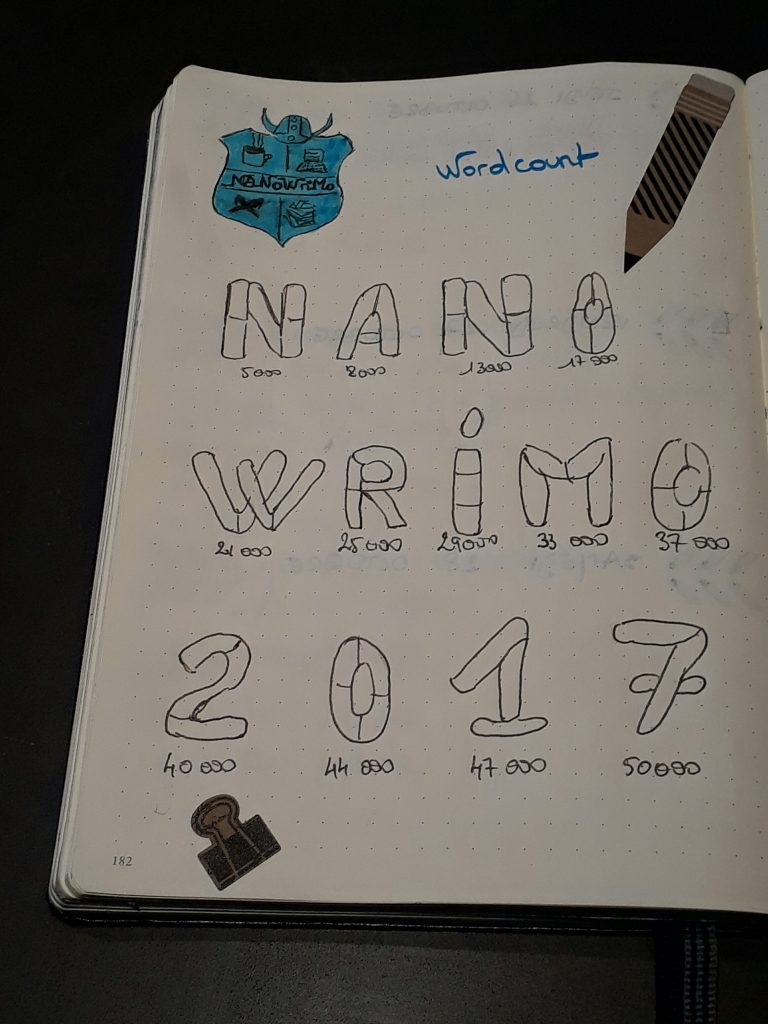 NaNoWriMo
Wordcount
NANO
5000 8000 13000 17 000
WRiMO
21 000 25.000 29000 33 000 37 000
2017
40 000 44 000 47 000 50000
182